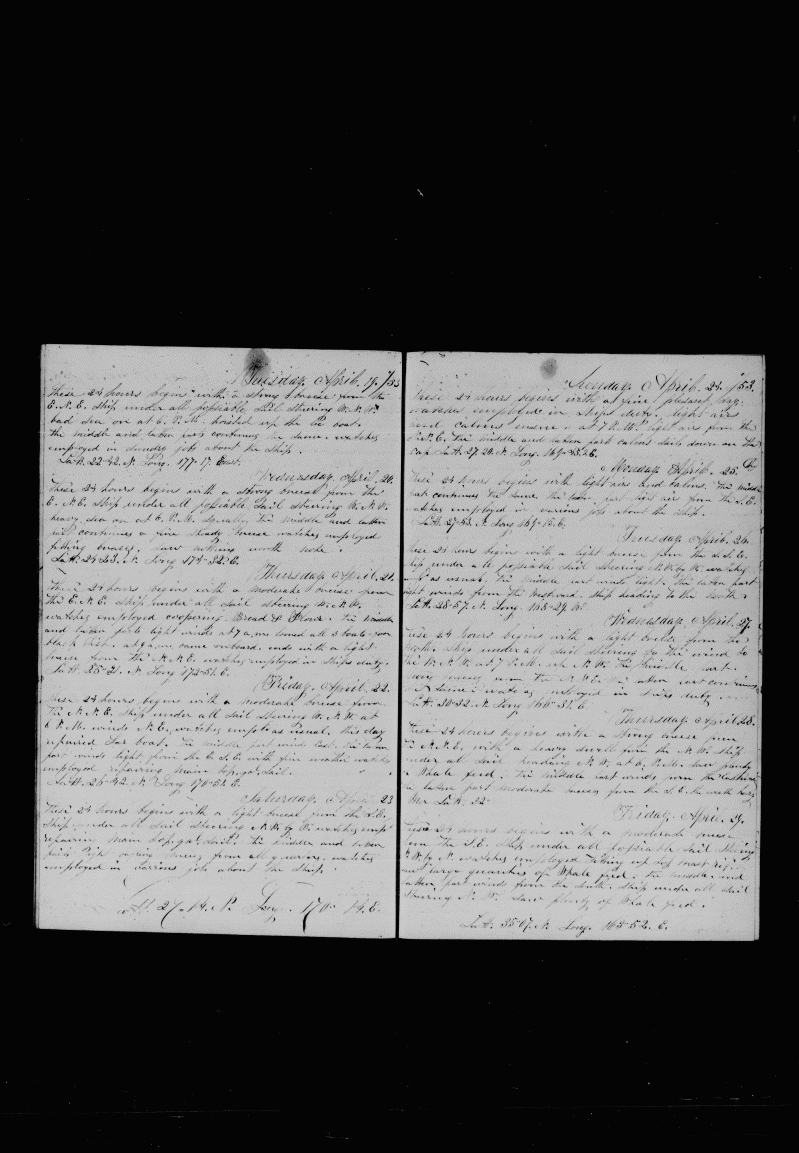 Tuesday. April. 19. /53
These 24 hours begins with a strong breeze from the
E. N. E. Ship under all possiable Sail stering W. N. W.
bad sea on at 6. P. M. hoisted up the boat.
the middle and laten parts continues the same. watches
employed in jobs about the ship.
Latt. 22-42. N. Long. 177-17. East.
Wednesday. April. 20.
These 24 hours begins with a strong breeze from the
E. N. E. Ship under all possiable Sail steering W. N. W.
heavy sea on at 6. P. M. Squally, the middle and laten
part continues a fine steady breeze watches employed
fitting braces. saw nothing worth note.
Latt. 24-43. N. Long 174-32. E.
Thursday. April. 21.
These 24 hours begins with a moderate breeze from
the E. N. E. Ship under all sail steering W. N. W.
watches employed coopering Bread & Flour. the middle
and laten parts light winds at 7 a,m, lowed all 3 boats for
black fish. at 9 a,m, came onboard. ends with a light
breeze from the N. N. E. watches employed in ships duty.
Latt. 25-21. N. Long 172-51. E.
Friday. April. 22.
These 24 hours begins with a moderate breeze from
the N. N. E. Ship under all sail steering W. N. W. at
P. M. winds N. E, watches employ as usual, this day
repaired Lar boat. the middle part winds East. the laten
part winds light from the E. S. E. with fine weather watches
employed repairing main top, gal, sail.
Latt. 26-42. N. Long 170-51. E.
Saturday. April 23
These 24 hours begins with a light breeze from the S. E.
Ship under all sail steering N. W. by W. watches emp
repairin main top, gal, sail. the middle and laten
parts light varing breezes from all quarters, watches
employed in varrious jobs about the ship.
Latt. 27-14. N. Long. 170- 14. E.
Sunday. April. 24. /53.
These 24 hours begins with a fine plesant day.
watches employed in ships duty. light airs
and calms ensues. at 7 P. M. light airs from the
E. N. E. The middle and laten part calms sails down on the
cap. Latt. 27-24. N. Long. 169-45. E.
Monday. April. 25.
These 24 hours begins with light airs and calms. the middle
part continues the same. the laten part airs from the S. E.
watches employed in various jobs about the ship.
Latt. 27-53. N. Long 169-15. E.
Tuesday. April. 26.
These 24 hours begins with a light breeze from the S. S. E.
Ship under all possiable sail steering N. W. by W. watches
as usual, the middle part winds light. the laten part
light winds from the Westward. ship heading to the North.
Latt. 28-57. N. Long. 168-29. E.
Wednesday. April. 27.
These 24 hours begins with a light breeze from the
ship under all sail stering by the wind to
the W. N. W. at 7 P. M. N. W. the middle part
from the N. N. E. the laten part continues
the same watches employed in ships duty.
Latt. 30-32. N. Long 166-31. E.
Thursday. April 28.
These 24 hours begins with a strong breeze from
the N. N. E. with a heavy swell from the N. W. Ship
under all sail heading N. W. at 6. P. M. saw plenty
of Whale feed. the middle part winds from the Eastward
the laten part moderate breeze from the S. E. the weather
Latt. 32-
Friday. April. 29.
These 24 hours begins with a moderate breeze
from the S. E. Ship under all possiable sail stering
N. W. by N. watches employed
saw large quanties of Whale feed. the middle, and
laten, part winds from the South. ship under all sail
stering N. W. Saw plenty of Whale feed.
Latt. 35-07. N. Long. 163-52. E.